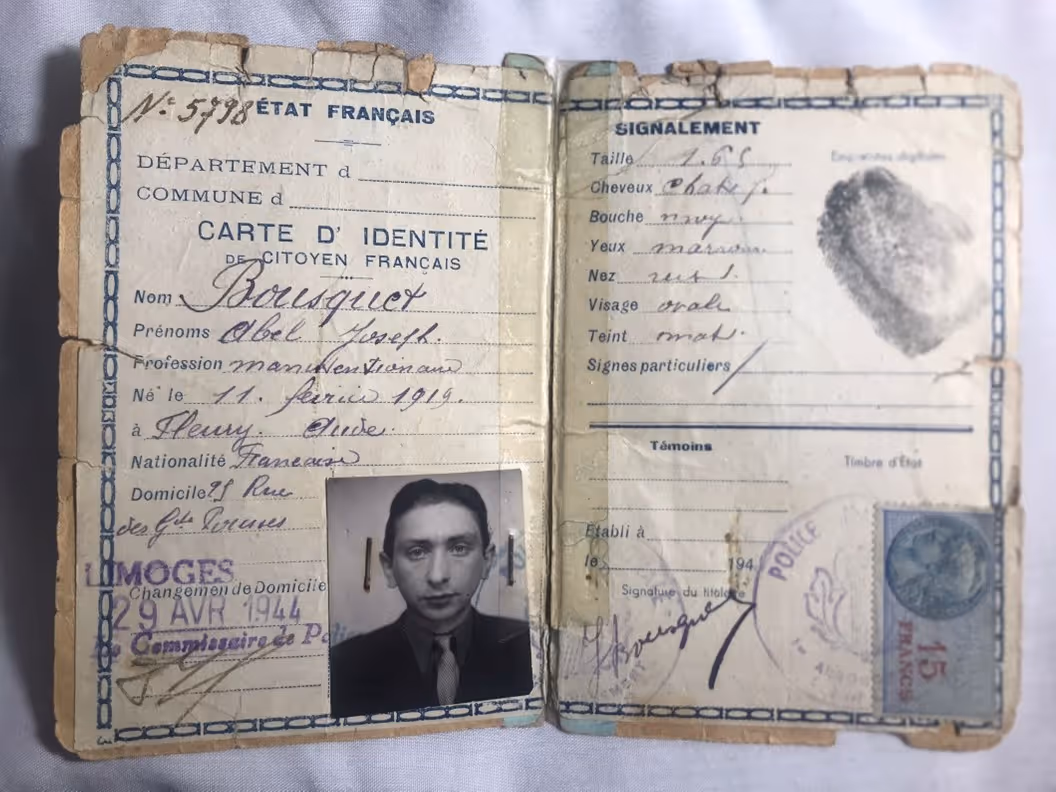 Nº 5798 ÉTAT FRANÇAIS
DÉPARTEMENT d
COMMUNE d
CARTE D' IDENTITÉ
DE CITOYEN FRANÇAIS
Nom Bousquet
Prénoms Abel Joseph.
Profession manutentionnaire
Né le 11. février 1919.
à Fleury. Aude.
Nationalité Francaise
Domicile Rue
des
LIMOGES
Changement de Domicile
29 AVR 1944
Commissaire de Police
SIGNALEMENT
Taille 1.65
Empreintes digitales
Cheveux
Bouche moy.
Yeux marrons
Nez
Visage ovale
Teint mat.
Signes particuliers /
Témoins
Timbre d'État
Etabli à
le 194
Signature du titulaire
Bousquet
POLICE
15
FRANCS